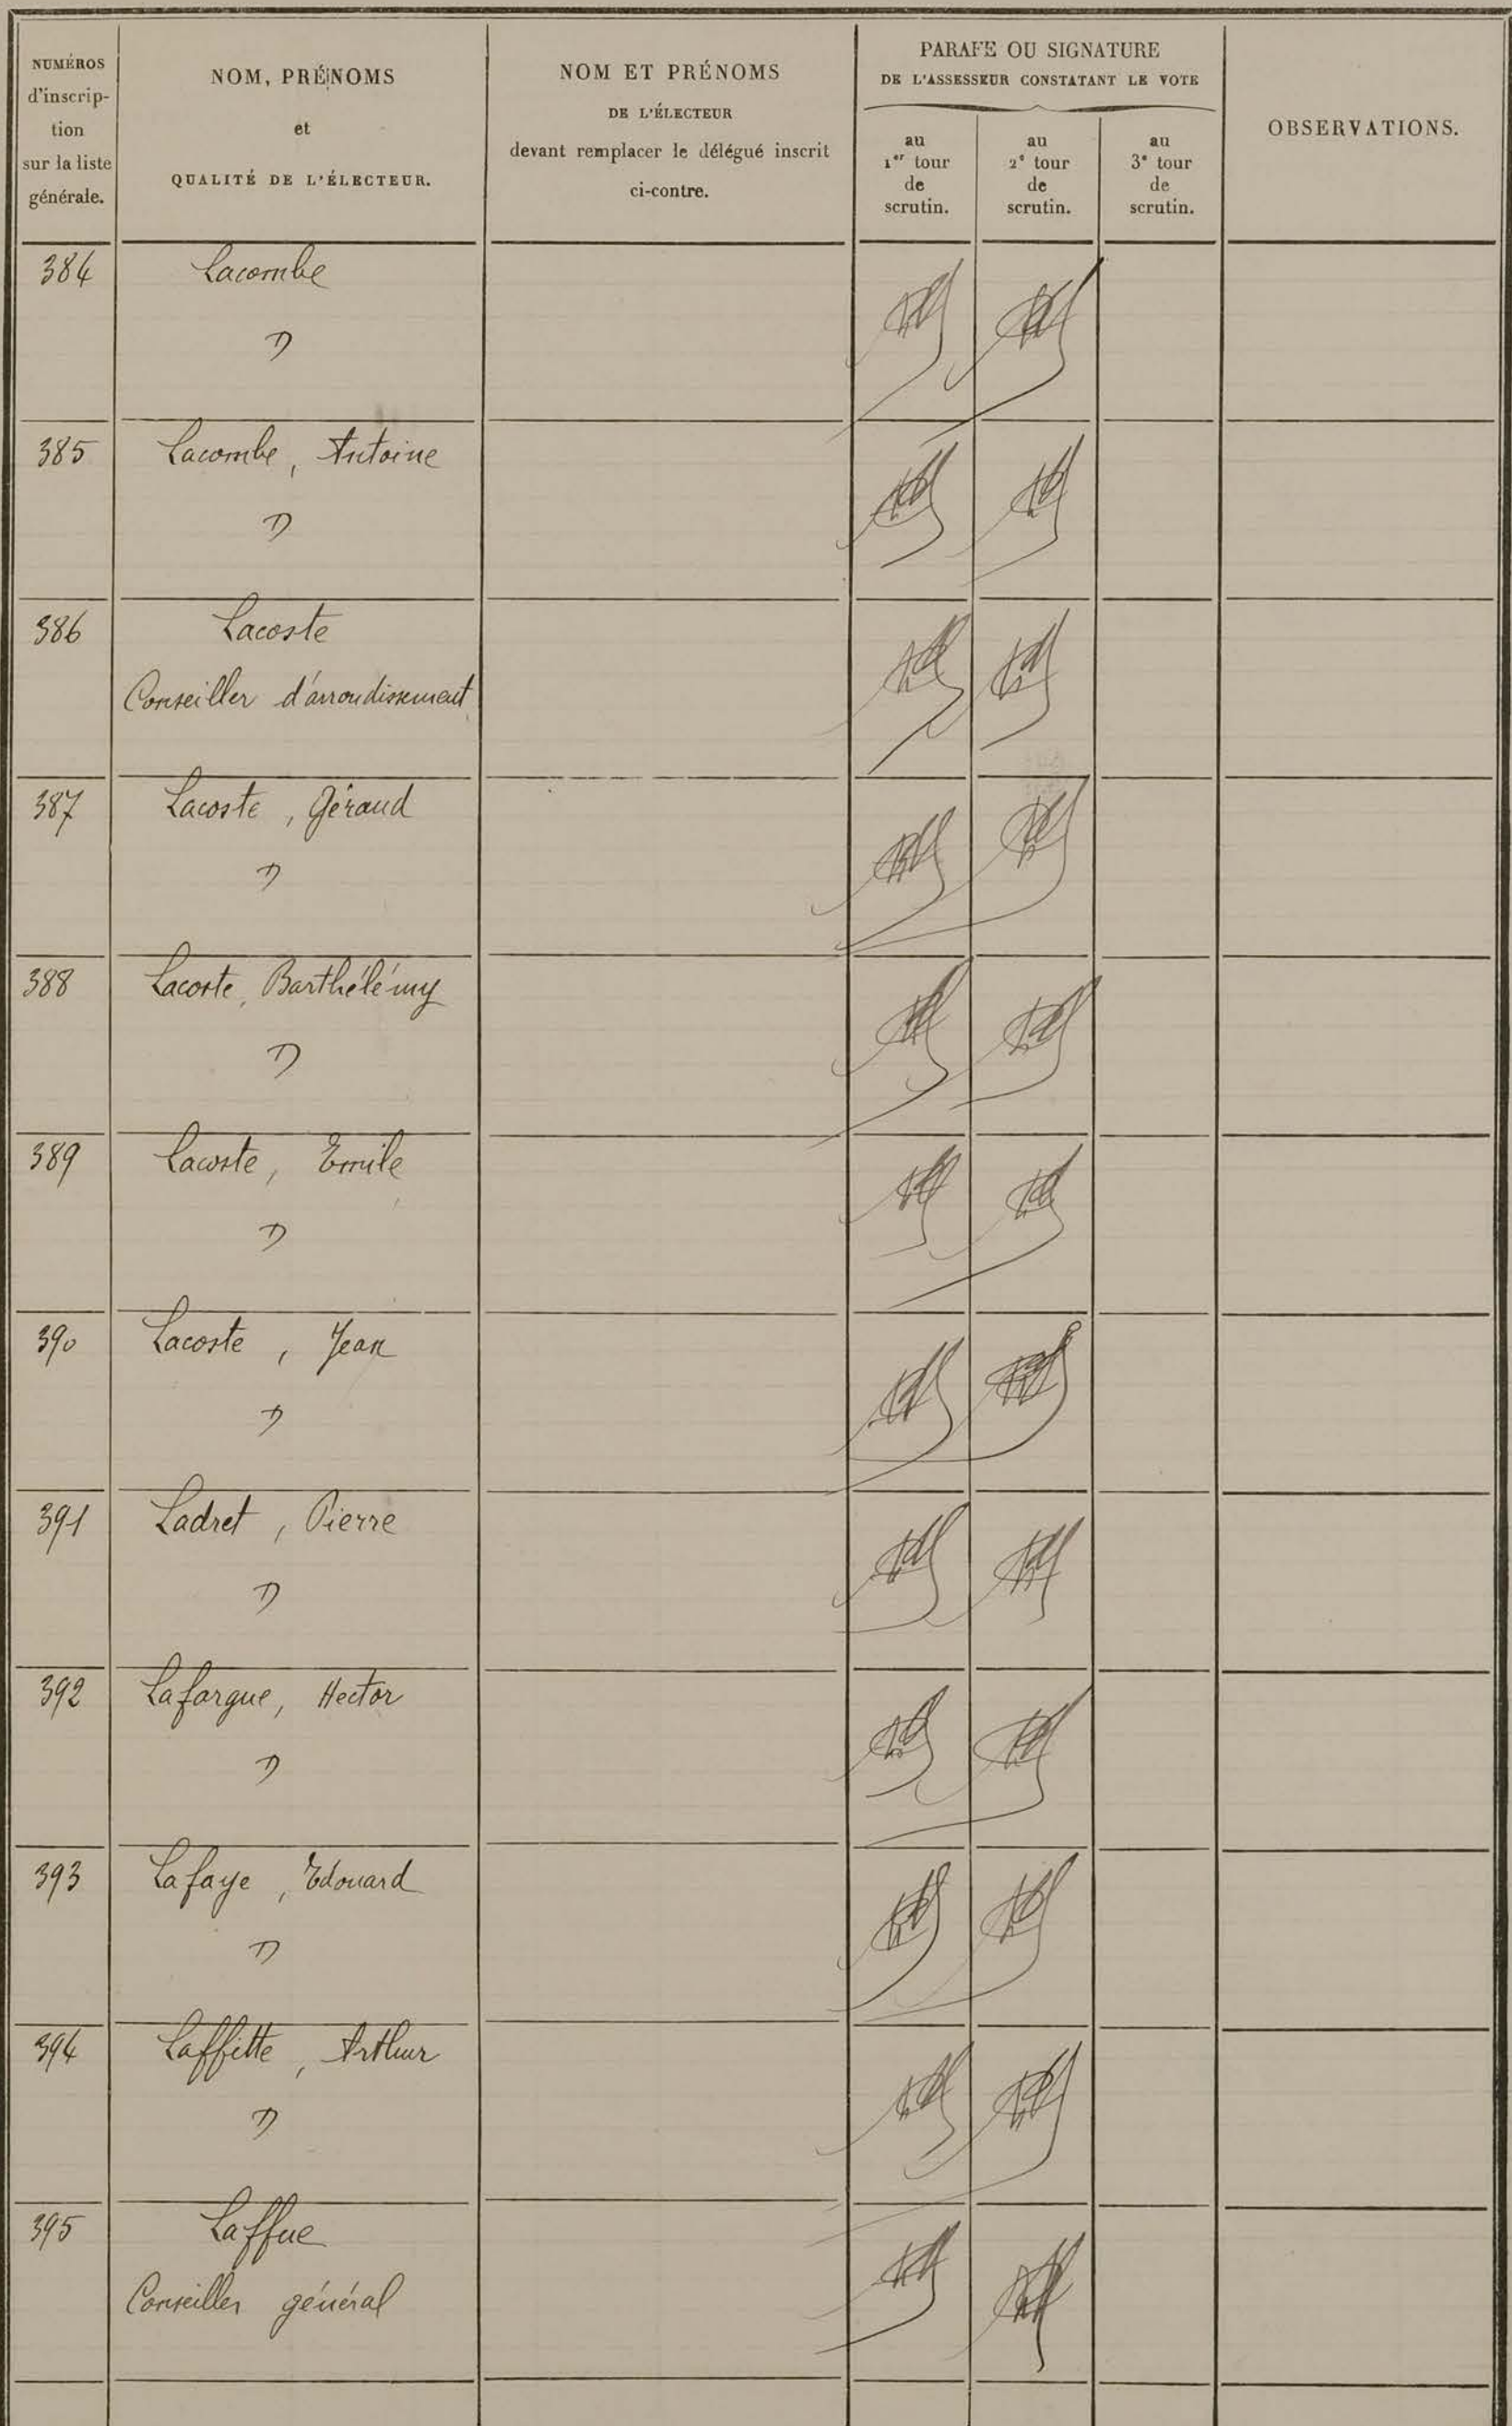 NUMÉROS
d'inscrip-
tion
sur la liste
générale.
NOM, PRÉNOMS
et
QUALITÉ DE L'ÉLECTEUR.
NOM ET PRÉNOMS
DE L'ÉLECTEUR
devant remplacer le délégué inscrit
ci-contre.
PARAFE OU SIGNATURE
DE L'ASSESSEUR CONSTATANT LE VOTE
au
1er tour
de
scrutin.
au
2e tour
de
scrutin.
au
3e tour
de
scrutin.
OBSERVATIONS.
384 Lacombe
D
385 Lacombe, Antoine
D
386 Lacoste
Conseiller d'arrondissement
387 Lacoste, Géraud
D
388 Lacoste, Barthélémy
D
389 Lacoste, Emile
D
390 Lacoste, Jean
D
391 Ladret, Pierre
D
392 Lafargue, Hector
D
393 Lafaye, Edouard
D
394 Laffitte, Arthur
D
395 Laffue
Conseiller général